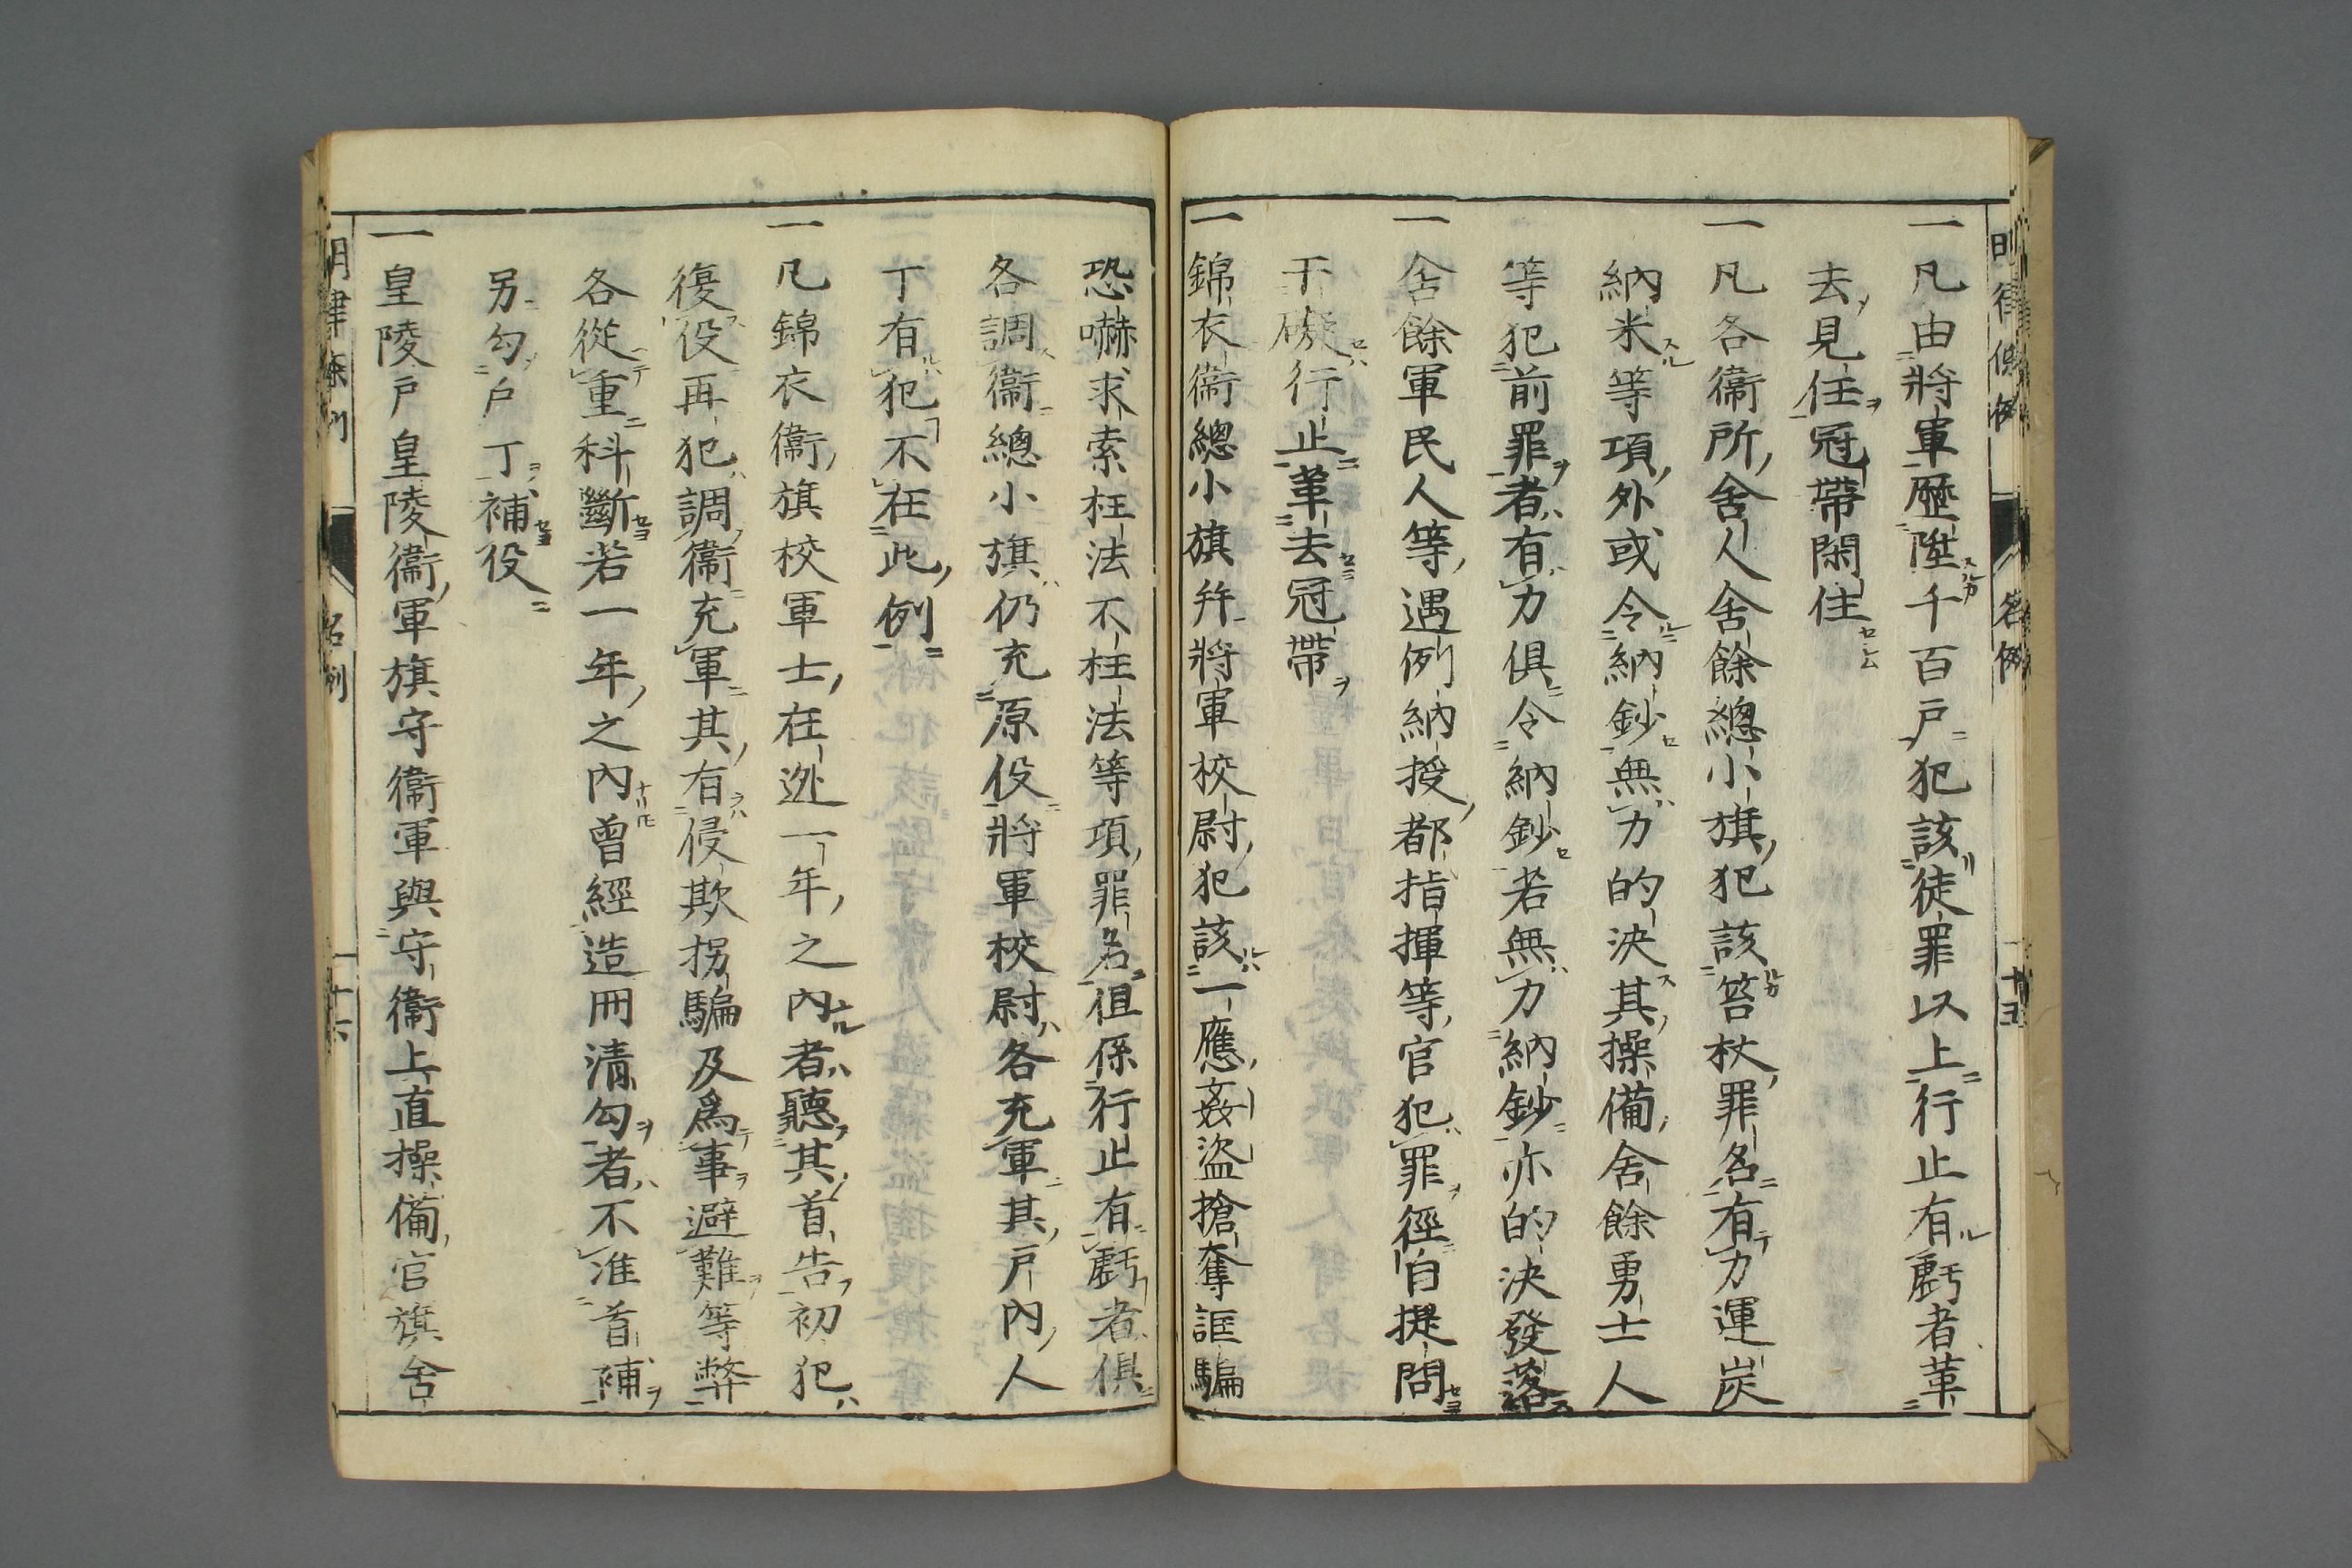 明律條例 名例 十五
一凡由將軍歷陞千百戸犯該徒罪以上行止有虧者革
去見任冠帶閑住
一凡各衞所舍人舍餘總小旗犯該笞杖罪名有力運炭
納米等項外或令納鈔無力的決其操備舍餘勇士人
等犯前罪者有力俱令納鈔若無力納鈔亦的決發落
一舍餘軍民人等遇例納授都指揮等官犯罪徑自提問
干礙行止革去冠帶
一錦衣衞總小旗幷將軍校尉犯該一應姦盜搶奪誆騙
恐嚇求索枉法不枉法等項罪名但係行止有虧者俱
各調衞總小旗仍充原役將軍校尉各充軍其戸內人
丁有犯不在此例
一凡錦衣衞旗校軍士在逃一年之內者聽其首告初犯
復役再犯調衞充軍其有侵欺拐騙及爲事避難等弊
各從重科斷若一年之內曾經造冊清勾者不准首補
另勾戸丁補役
一皇陵戸皇陵衞軍旗守衞軍與守衞上直操備官旗舍
明律條例 名例 十六